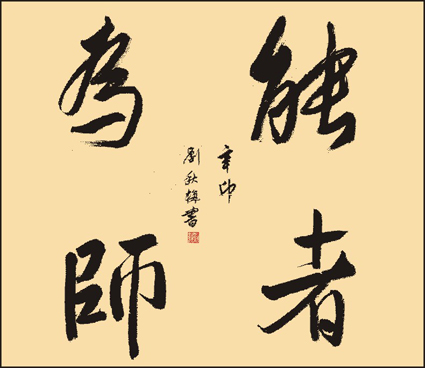 能者
為師
辛卯
劉秋梅書